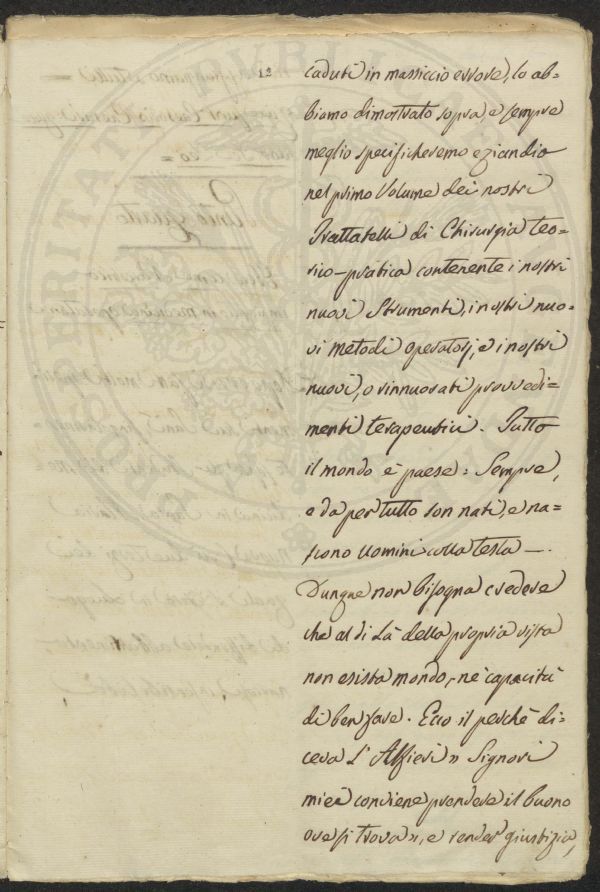 12
caduti in massiccio errore, lo ab=
biamo dimostrato sopra, e sempre
meglio specificheremo eziandio
nel primo Volume dei nostri
Trattatelli di Chirurgia teo=
rico-pratica contenente i nostri
nuovi Strumenti, i nostri nuo=
vi metodi operatorj, e i nostri
nuovi, o rinnuovati provvedi=
menti terapeutici. Tutto
il mondo è paese: Sempre,
e da per tutto son nati, e na=
scono Uomini colla testa —.
Dunque non bisogna credere
che al di là della propria vista
non esista mondo, nè capacità
di ben fare. Ecco il perchè di=
ceva l'Alfieri » Signori
miei conviene prendere il buono
ove si trova », e render giustizia,